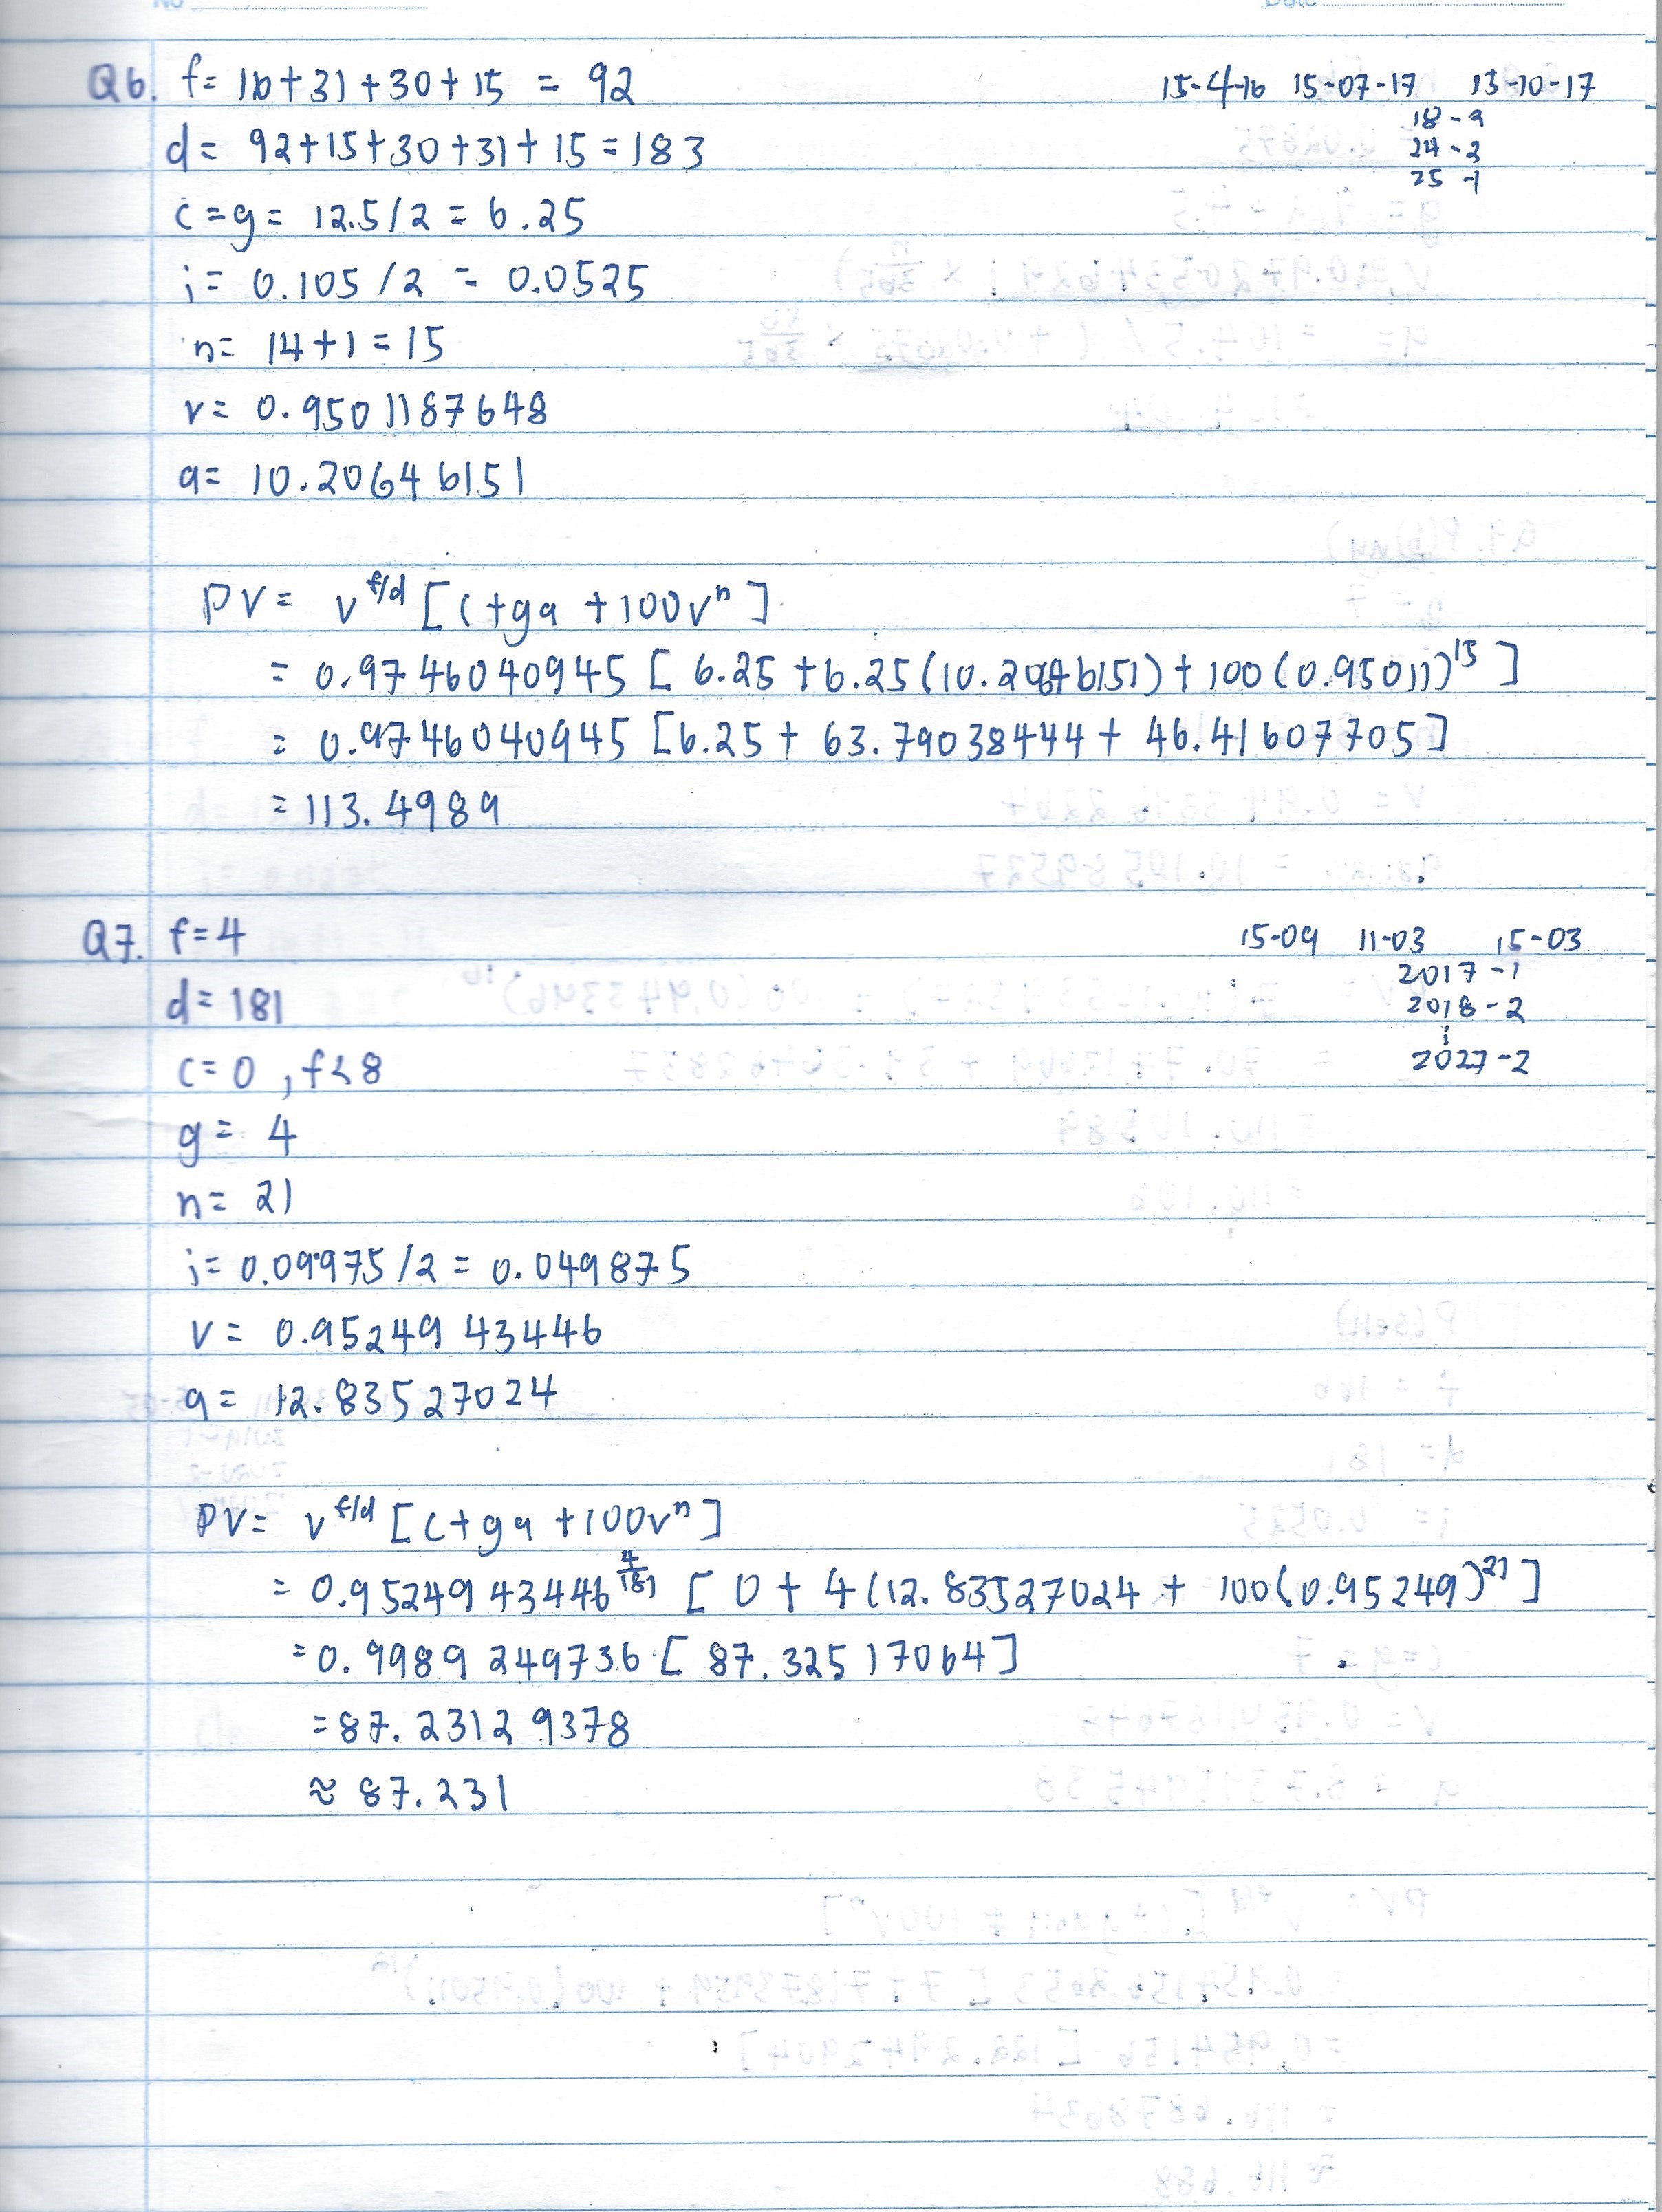 No
Date
Q6. f= 16+31+30+15 = 92
15-4-16 15-07-17 15-10-17
18-2
d= 92+15+30+31+15=183
24-2
25-1
c=g= 12.5/2 = 6.25
i= 0.105/2 = 0.0525
n= 14+1=15
v= 0.9501187648
a= 10.20646151
PV= v^f/d [c+ga+100v^n]
= 0.9746040945 [ 6.25+6.25(10.20646151)+100(0.95011)^15 ]
= 0.9746040945 [6.25+ 63.79038444+ 46.41607705]
= 113.4989
Q7. f=4
15-09 11-03 15-03
2017-1
d=181
2018-2
⋮
c=0, f<8
2027-2
g= 4
n= 21
i= 0.09975/2 = 0.049875
v= 0.9524943446
a= 12.83527024
PV= v^f/d [c+ga+100v^n]
= 0.9524943446^4/181 [ 0+ 4(12.83527024 + 100(0.95249)^21 ]
=0.9989249736 [ 87.32517064]
=87.23129378
≈ 87.231